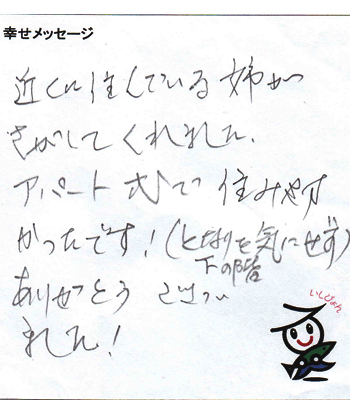 幸せメッセージ
近くに住んでいる姉が
さがしてくれました。
アパート 広くて 住みやす
かったです！(となりを気にせず)
下の階
ありがとう ござい
ました！
いしぴょん